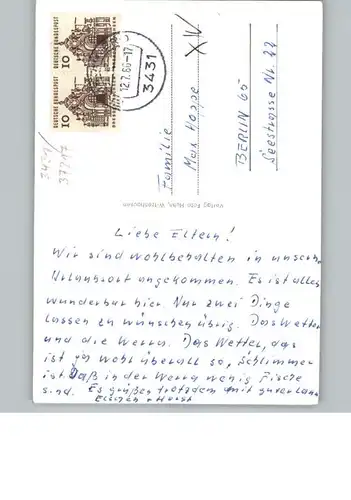 DEUTSCHE BUNDESPOST
10
DEUTSCHE BUNDESPOST
10
12.7.66-17
3431
XIV
Familie
Max Hoppe
BERLIN 65
Seestrasse Nr. 77
Verlag Foto Huhn, Witzenhausen
3431/
37717
Liebe Eltern!
Wir sind wohlbehalten in unserem
Urlaubsort angekommen. Es ist alles
wunderbar hier. Nur zwei Dinge
lassen zu wünschen übrig. Das Wetter
und die Werra. Das Wetter, das
ist ja wohl überall so, Schlimmer
ist. Daß in der Werra wenig Fische
sind. Es grüßen trotzdem mit guter Laune
Horst